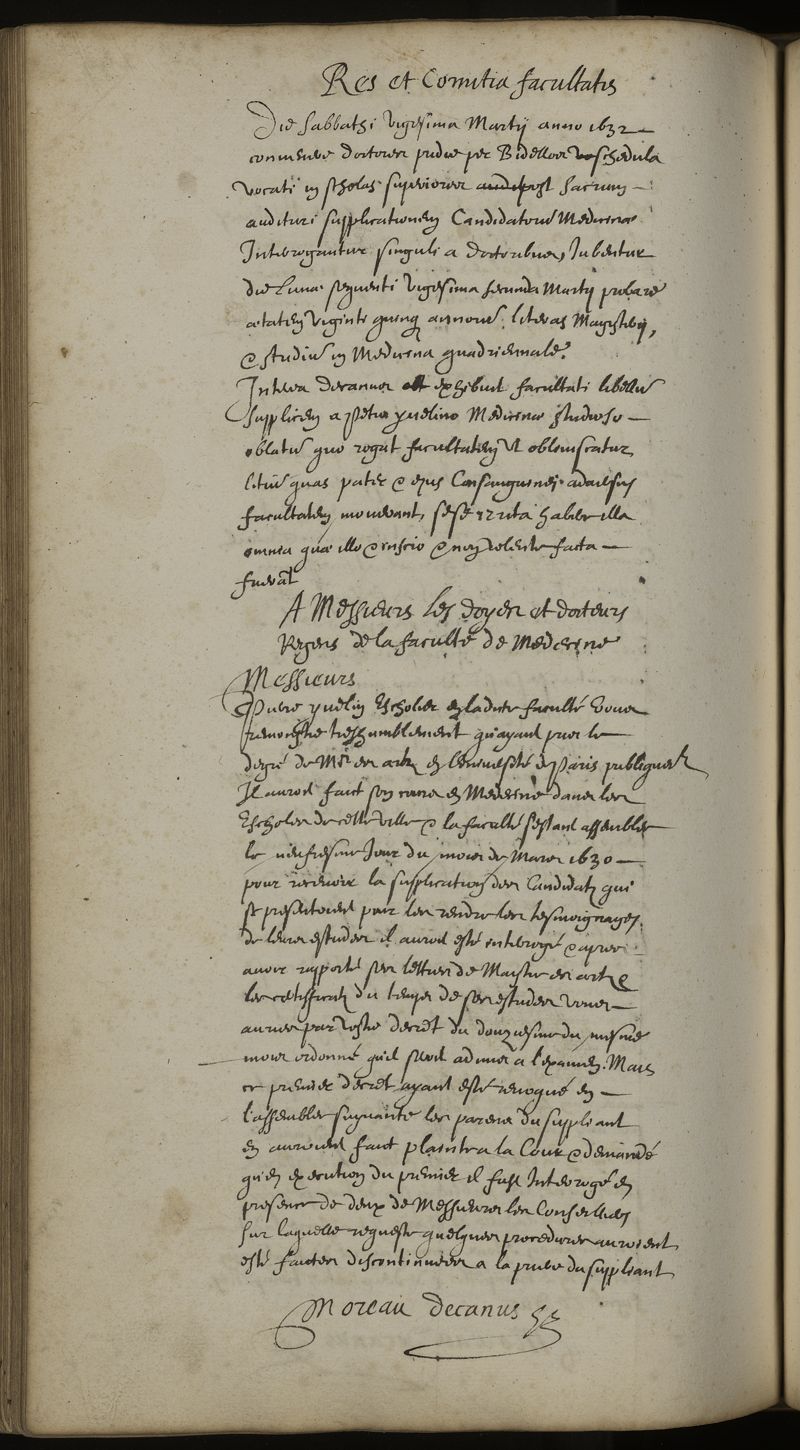 Res et Comitia facultatis
Die Sabbathi vigesima Martij anno 1632
convenere doctores pridie per Bidellos schedula
vocati in scholas superiores post sacrum
audituri supplicationem Candidatorum Medicinae
Interrogantur singuli a doctoribus, Jubentur
die Lunae sequenti vigesima secunda Martij probare
aetatem viginti quinq annorum, literas Magisterij,
& studium in Medicina quadriennale.
Interea decanus exhibuit facultati libellum
supplicem a Petro yvelino Medicinae studioso
oblatum quo rogat facultatem ut obliviscatur
litium quas pater & ejus Consanguinei adversus
facultatem moverant, sese irrita habere illa
omnia quae illo & inscio & non volente facta
fuerant
A Messieurs Les doyen et docteurs
Regens de la faculté de Medecine
Messieurs
Pierre yvelin Escholier en ladicte faculté vous
remonstre treshumblement qu'ayant pris le
degré de Mre es arts en l'université de Paris
Il auroit faict son cours en Medecine dans les
Escholes de cette ville & la faculté s'estant assemblee
le neufiesme Jour du mois de Mars 1630
pour recevoir la supplication des Candidats qui
se presentoient pour leur rendre les tesmoignages
de leurs estudes il auroit esté interrogé & apres
avoir rapporté ses lettres de Maistre es arts &
les certificats du temps de ses estudes vous
auriez par vostre decret du douziesme du mesme
mois ordonné qu'il seroit admis a l'examen. Mais
ce premier decret ayant esté revoqué en
l'assemblee suyvante les parens du suppliant
en auroient faict plainte a la Cour & demandé
qu'en execution du premier il fust Interrogé en
presence de deux de Messieurs les Conseillers
sur laquelle requeste quelques procedures auroient
esté faictes discontinuees a la priere du suppliant
Moreau decanus